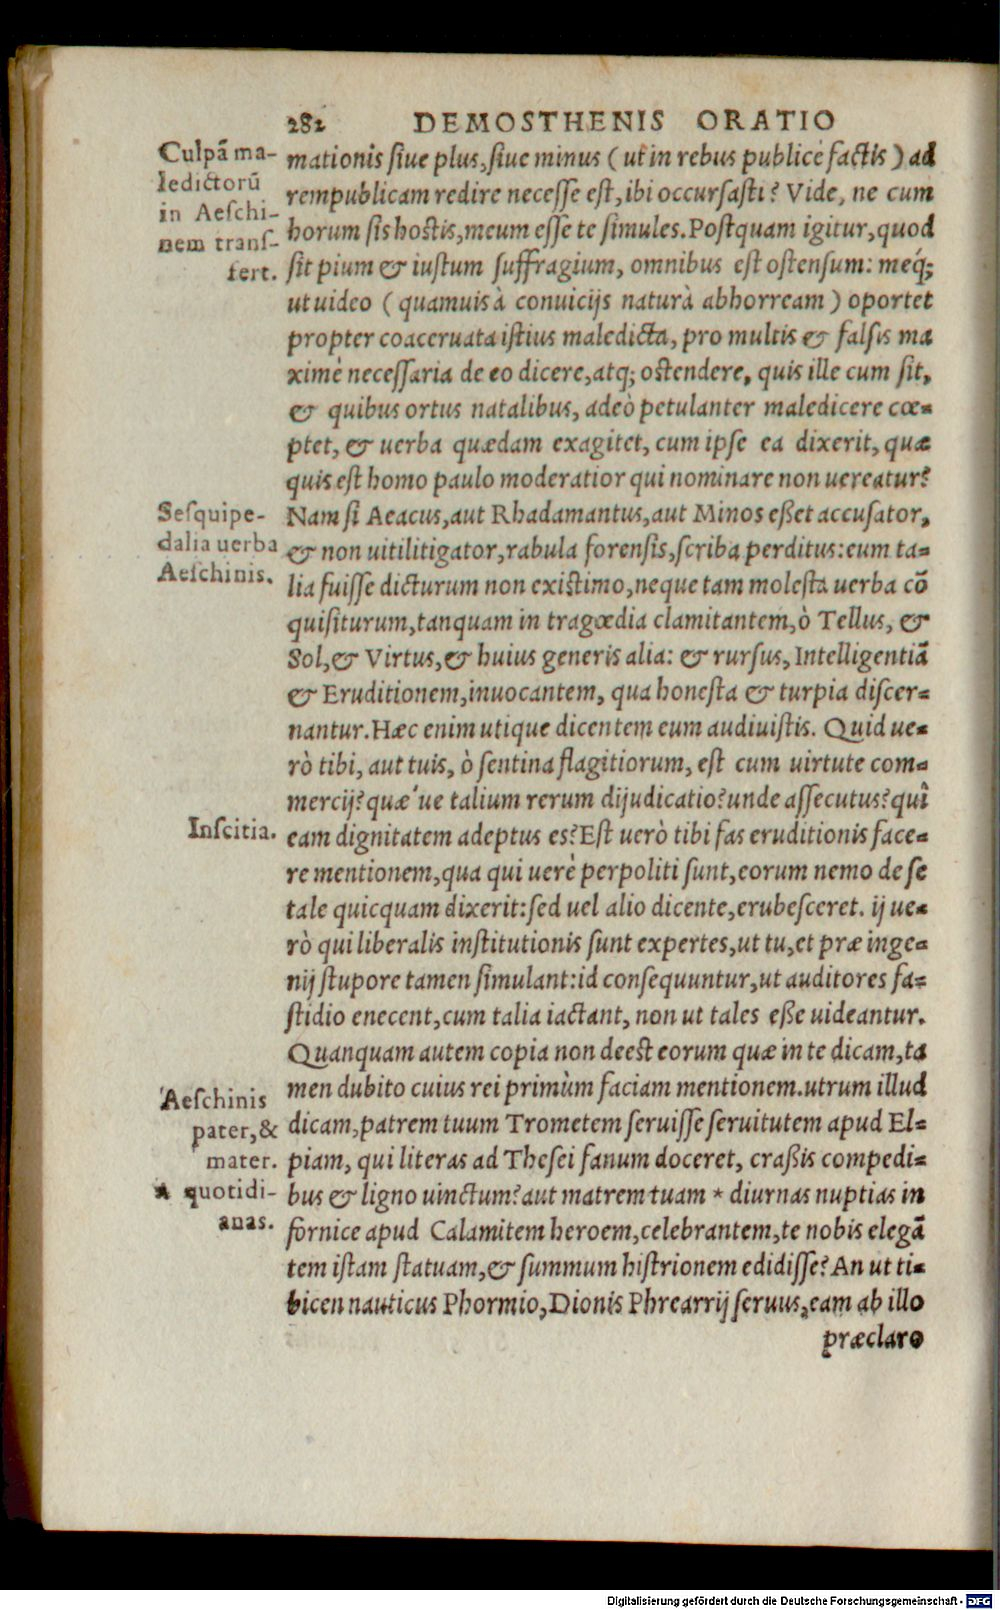 282 DEMOSTHENIS ORATIO
Culpā ma-
ledictorū
in Aeschi-
nem transf-
fert.
mationis siue plus, siue minus (ut in rebus publicè factis) ad
rempublicam redire necesse est, ibi occursasti? Vide, ne cum
horum sis hostis, meum esse te simules. Postquam igitur, quod
sit pium & iustum suffragium, omnibus est ostensum: meq́;
ut uideo (quamuis à conuicijs naturà abhorream) oportet
propter coaceruata istius maledicta, pro multis & falsis ma
ximè necessaria de eo dicere, atq; ostendere, quis ille cum sit,
& quibus ortus natalibus, adeò petulanter maledicere cœ-
ptet, & uerba quædam exagitet, cum ipse ea dixerit, quæ
quis est homo paulo moderatior qui nominare non uereatur?
Sesquipe-
dalia uerba
Aeschinis.
Nam si Aeacus, aut Rhadamantus, aut Minos eßet accusator,
& non uitilitigator, rabula forensis, scriba perditus: eum ta-
lia fuisse dicturum non existimo, neque tam molesta uerba cō
quisiturum, tanquam in tragœdia clamitantem, ò Tellus, &
Sol, & Virtus, & huius generis alia: & rursus, Intelligentiā
& Eruditionem, inuocantem, qua honesta & turpia discer-
nantur. Hæc enim utique dicentem eum audiuistis. Quid ue-
rò tibi, aut tuis, ò sentina flagitiorum, est cum uirtute com-
mercij? quæ'ue talium rerum dijudicatio? unde assecutus? quî
Inscitia.
eam dignitatem adeptus es? Est uerò tibi fas eruditionis face-
re mentionem, qua qui uerè perpoliti sunt, eorum nemo de se
tale quicquam dixerit: sed uel alio dicente, erubesceret. ij ue-
rò qui liberalis institutionis sunt expertes, ut tu, et præ inge-
nij stupore tamen simulant: id consequuntur, ut auditores fa-
stidio enecent, cum talia iactant, non ut tales eße uideantur.
Quanquam autem copia non deest eorum quæ in te dicam, ta
men dubito cuius rei primùm faciam mentionem. utrum illud
Aeschinis
pater, &
mater.
* quotidi-
anas.
dicam, patrem tuum Trometem seruisse seruitutem apud El-
piam, qui literas ad Thesei fanum doceret, craßis compedi-
bus & ligno uinctum? aut matrem tuam * diurnas nuptias in
fornice apud Calamitem heroem, celebrantem, te nobis elegā
tem istam statuam, & summum histrionem edidisse? An ut ti-
bicen nauticus Phormio, Dionis Phrearrij seruus, eam ab illo
præclaro
Digitalisierung gefördert durch die Deutsche Forschungsgemeinschaft - DFG